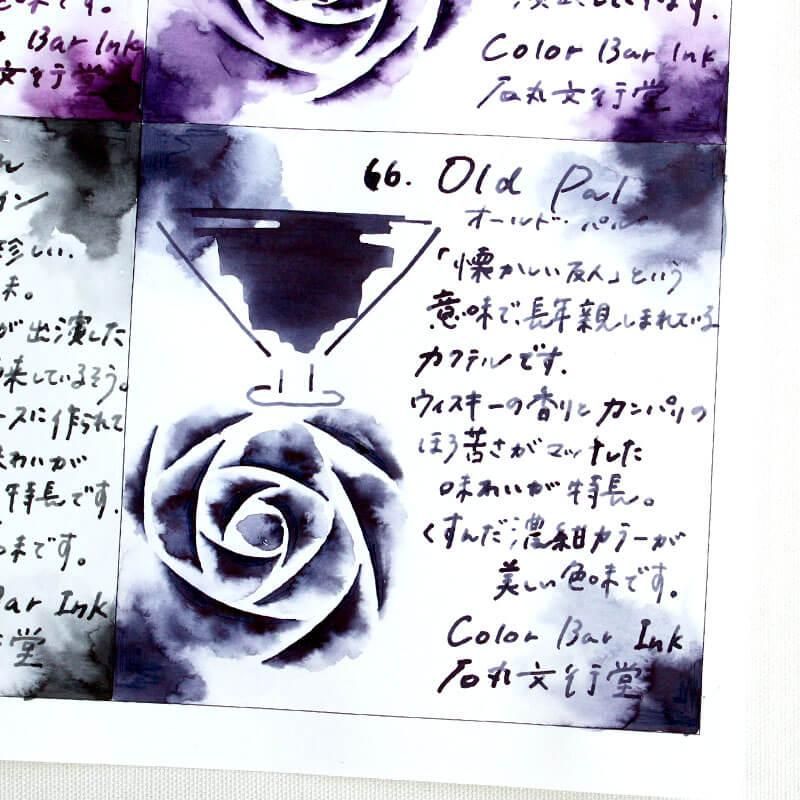 味です。
Bar Ink
文行堂
Color Bar Ink
石丸文行堂
珍しい、
味。
が出演した
来しているそう。
ースに作られて
味わいが
特長です。
味です。
Bar Ink
堂
66. Old Pal
オールド・パル
「懐かしい友人」という
意味で、長年親しまれている
カクテルです。
ウィスキーの香りとカンパリの
ほろ苦さがマッチした
味わいが特長。
くすんだ濃紺カラーが
美しい色味です。
Color Bar Ink
石丸文行堂